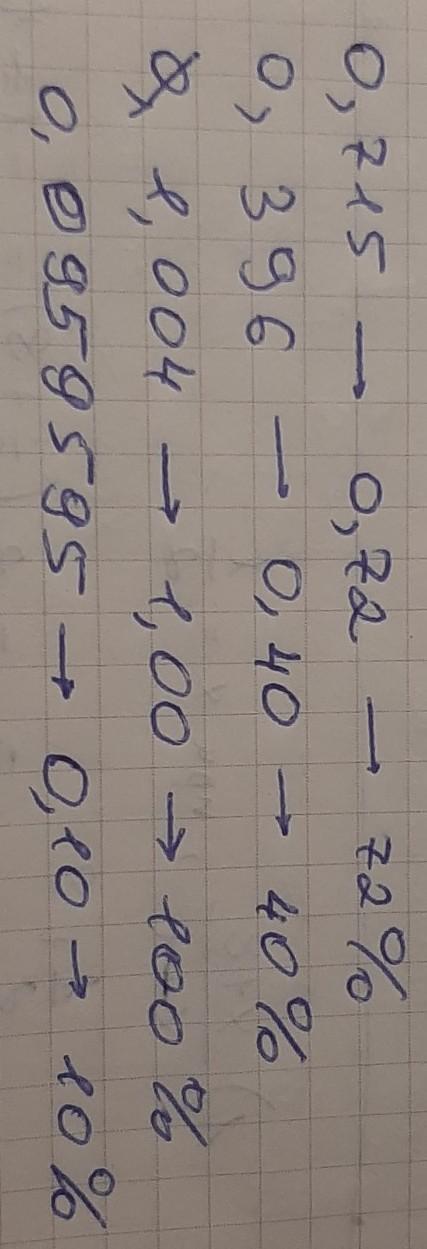 0,715 → 0,72 → 72%
0,396 → 0,40 → 40%
1,004 → 1,00 → 100%
0,0959595 → 0,10 → 10%